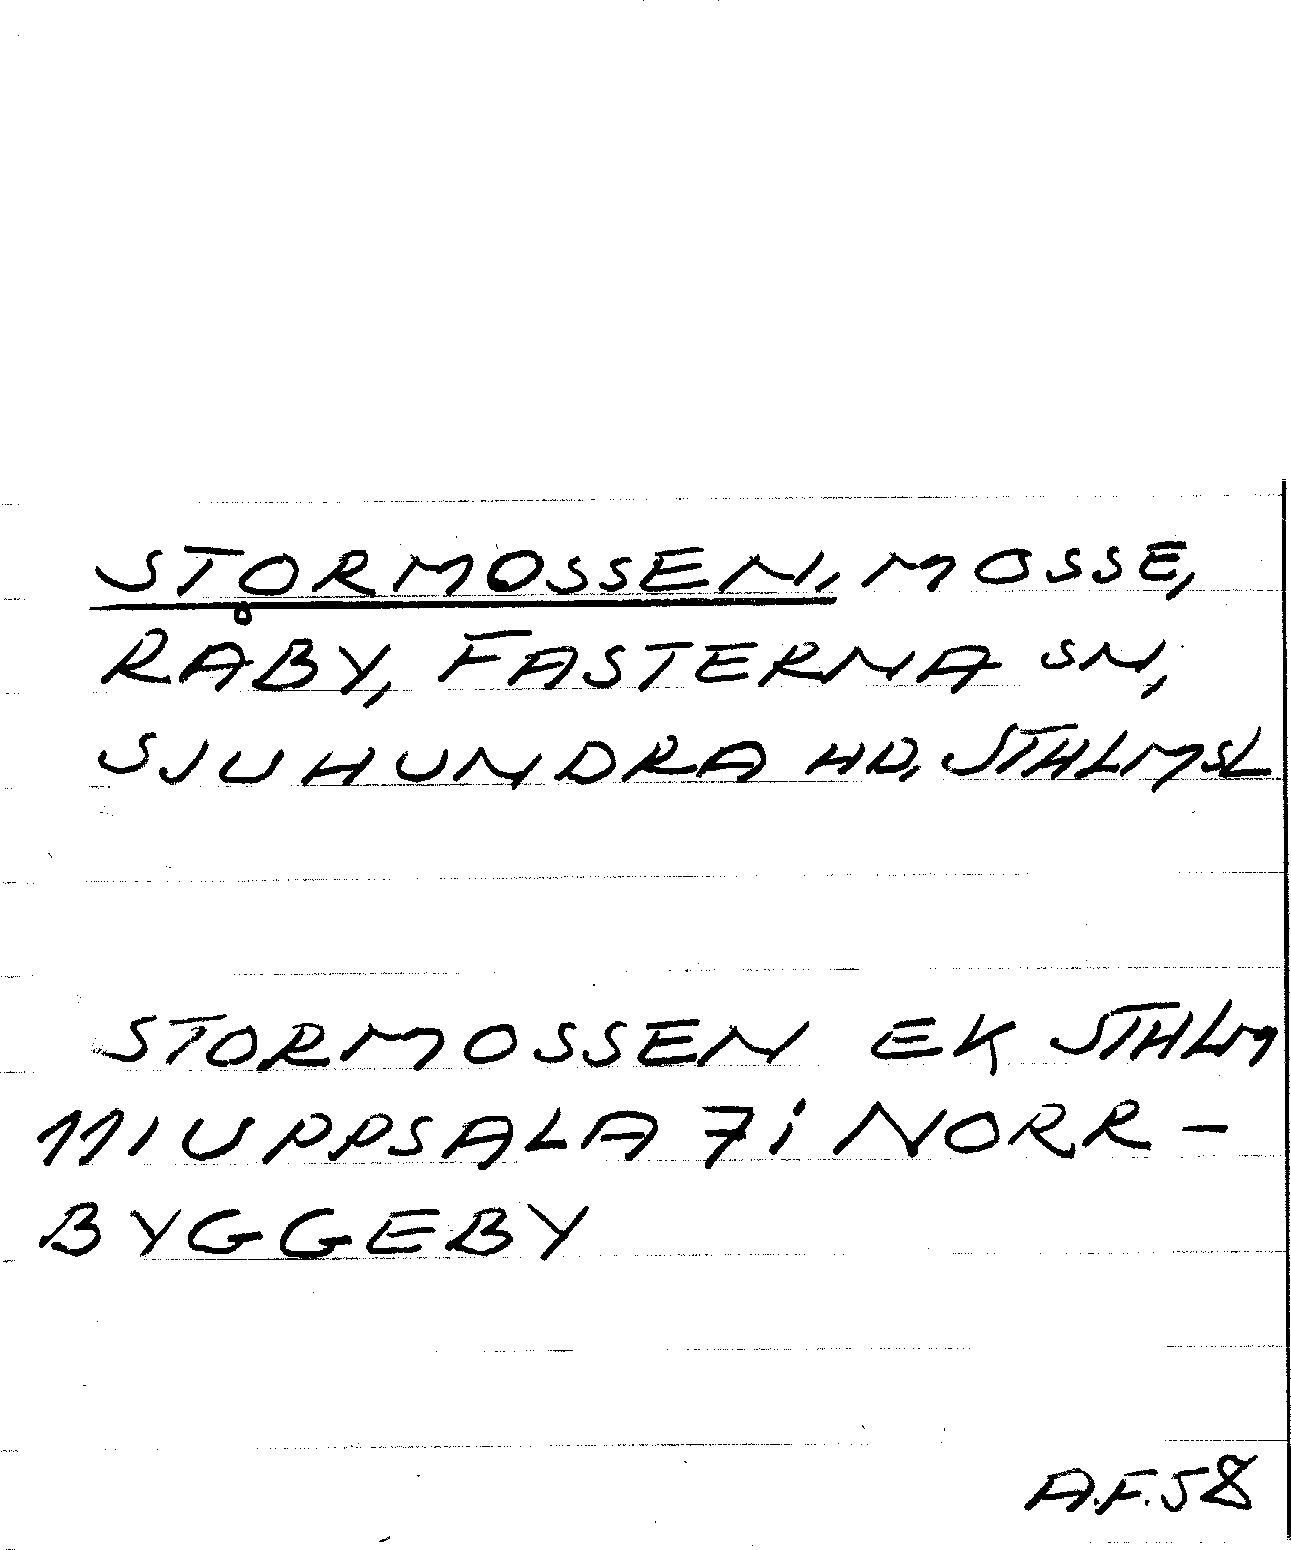 STORMOSSEN, MOSSE,
RÅBY, FASTERNA SN,
SJUHUNDRA HD, STHLMSL
STORMOSSEN EK STHLM
111 UPPSALA 7i NORR-
BYGGEBY
A.F.58